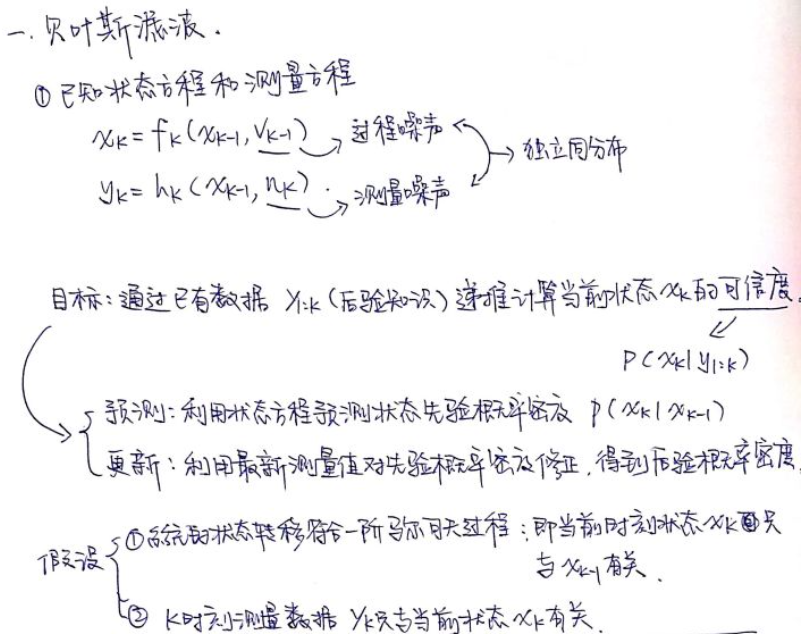 一. 贝叶斯滤波.
① 已知状态方程和测量方程
x_k = f_k(x_{k-1}, v_{k-1}) → 过程噪声
→ 独立同分布
y_k = h_k(x_{k-1}, n_k). → 测量噪声
目标: 通过已有数据 y_{1:k} (后验知识) 递推计算当前状态 x_k 的可信度.
P(x_k|y_{1:k})
预测: 利用状态方程预测状态先验概率密度 p(x_k|x_{k-1})
更新: 利用最新测量值对先验概率密度修正, 得到后验概率密度.
假设 ① 系统的状态转移符合一阶马尔可夫过程; 即当前时刻状态 x_k 只
与 x_{k-1} 有关.
② k时刻测量数据 y_k 只与当前状态 x_k 有关.